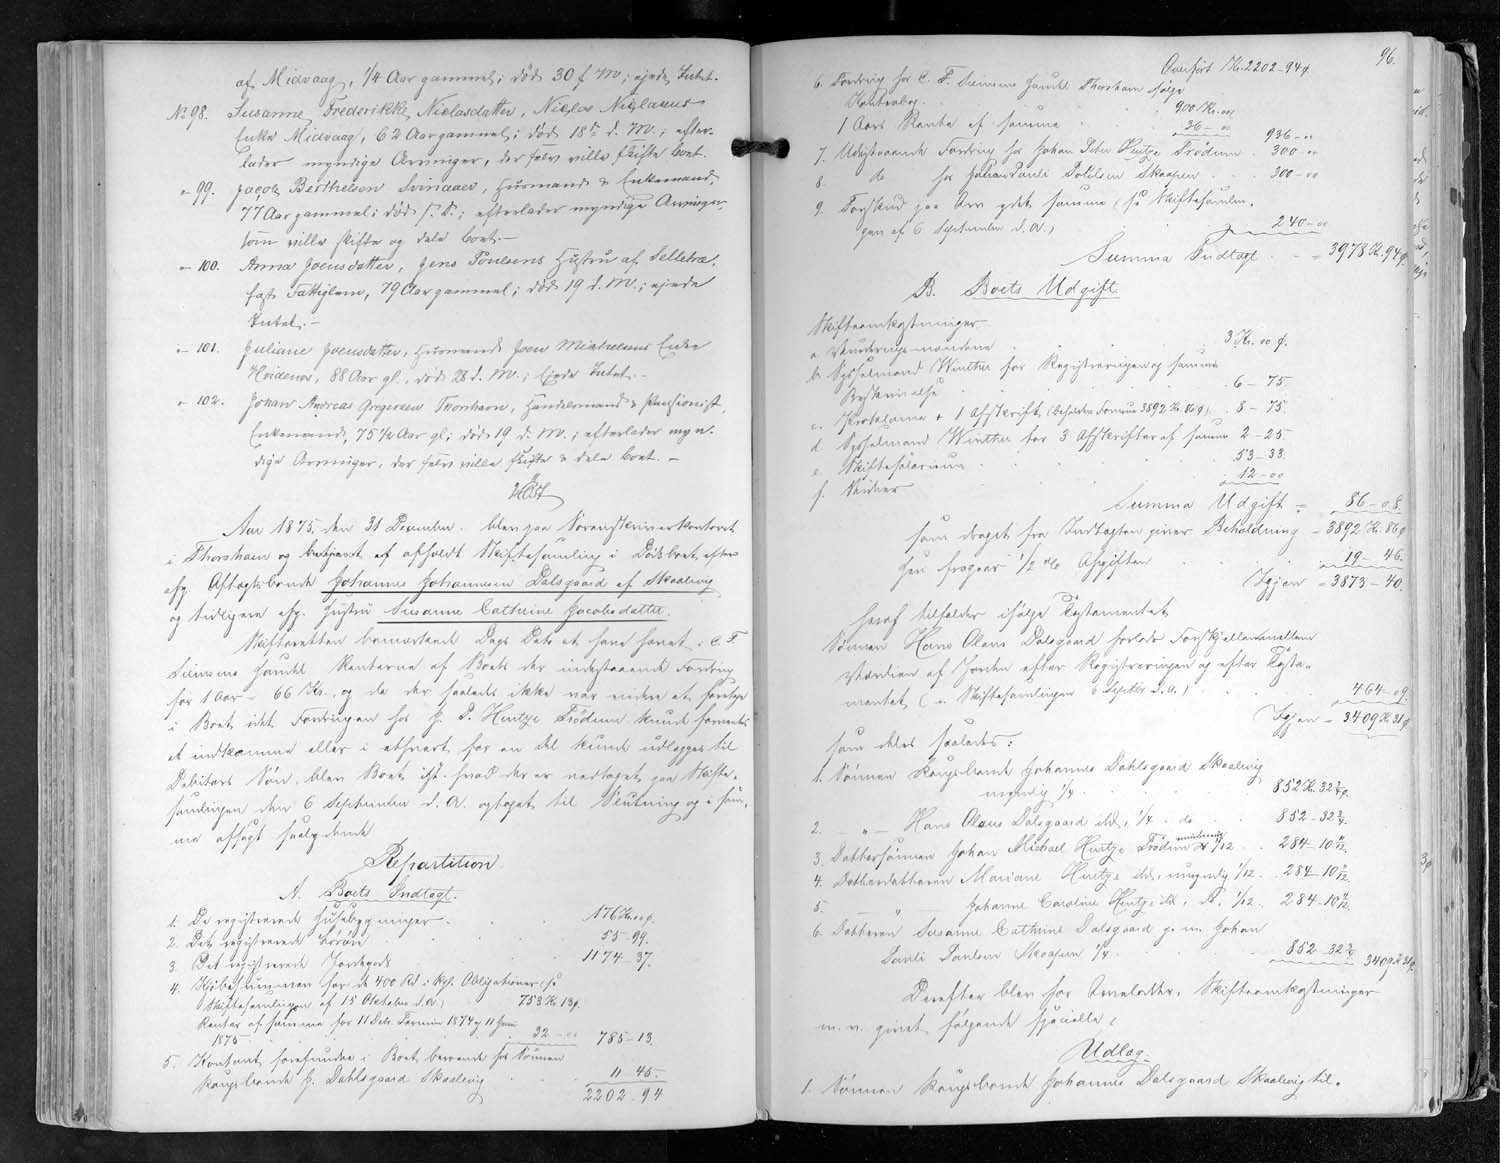 af Midvaag, 1/4 Aar gammel; død 30 f. M.; ejede Intet.
No 98. Susanne Frederikke Niclasdatter, Niclas Niclasens
Enke Midvaag, 62 Aar gammel; død 18de d. M.; efter-
lader myndige Arvinger, der selv ville skifte Boet.
" 99. Jacob Berthelsen Sviniaaer, Huusmand & Enkemand,
77 Aar gammel; død s. D.; efterlader myndige Arvinger,
som ville skifte og dele Boet.-
" 100. Anna Joensdatter, Jens Poulsens Hustru af Selletræ,
Fattiglem, 79 Aar gammel; død 19 d. M.; ejede
Intet.-
" 101. Juliane Joensdatter, Huusmand Joen Michelsens Enke
Hvidenæs, 88 Aar gl., død 28 d. M.; ejede Intet.-
" 102. Johan Andreas Gregersen Thorshavn, Handelsmand & Pensionist,
Enkemand, 75 1/2 Aar gl; død 19 d. M.; efterlader myn-
dige Arvinger, der selv ville skifte & dele Boet.-
Høst
Aar 1875, den 31 December. blev paa Sorenskriverkontoret
i Thorshavn og betjent af afholdt Skiftesamling i Dødsboet efter
afg. Aftægtsbonde Johannes Johannesen Dalsgaard af Skaalevig
og tidligere afg. Hustru Susanne Cathrine Jacobsdatter.
Skifteretten bemærkede Dags Dato at have hævet i C. F.
Siemsens Handel Renterne af Boets der indestaaende Fordring
for 1 Aar - 66 Kr., og da der saaledes ikke var videre at foretage
i Boet, idet Fordringen hos J. P. Hentze Frödum kunde forventes
at indkomme eller i ethvert for en Del kunde udlægges til
Debitors Søn, blev Boet ift. hvad der er vedtaget paa Skifte-
samlingen den 6 September d. A. optaget til Slutning og i sam-
me afsagt saalydende
Repartition.
A. Boets Indtægt.
1. De registrerede Husebygninger . . 176 Kr. 00 ø.
2. Det registrerede Løsøre . . 55-99.
3. Det registrerede Jordegods . . 1174-37.
4. Kjøbesummen for de 400 Rd. i Kgl. Obligationer (se
Skiftesamlingen af 15 Oktober d. A.) 753 Kr. 13 ø.
Renter af samme for 11 Decb. Termin 1874 og 11 Juni
1875 . . 32-00 785-13.
5. Kontant forefundne i Boet beroende hos Sønnen
Kongsbonde J. Dahlsgaard Skaalevig . . 11 45.
2202-94
96.
Overført Kr. 2202-94 ø.
6. Fordring hos C. F. Siemsens Handel Thorshavn ifølge
Kontrabog . . 900 Kr. 00
1 Aars Rente af samme . . 36-00 936-00
7. Udestaaende Fordring hos Johan Peter Hentze Frödum . 300-00
8. do hos Johan Pauli Poulsen Skaapen . . 300-00
9. Forskud paa Arv ydet samme (se Skiftesamlin-
gen af 6 September d. A.) 240-00
Summa Indtægt . - = 3978 Kr. 94 ø.
B. Boets Udgift
Skifteomkostninger
a. Vurderingsmændene . . 3 Kr. 00 ø.
b. Sysselmand Winther for Registreringen og samme
Beskrivelse . . 6-75.
c. Proklama + 1 Afskrift (beholden Formue 3892 Kr. 86 ø) . 8-75.
d. Sysselmand Winther for 3 Afskrifter af samme 2-25.
e. Skiftesalarium . . 53-33.
f. Skriver . . 12-00
Summa Udgift = 86-08.
som draget fra Indtægten giver Beholdning = 3892 Kr. 86 ø
heri fragaar 1/2 % Afgiften . . 19-46.
Igjen = 3873-40.
Heraf tilfalder ifølge Testamentet
Sønnen Hans Olaus Dalsgaard forlods Forskjellen mellem
Værdien af Jorden efter Registreringen og efter Testa-
mentet (v. Skiftesamlingen 6 Septbr d. A.) . . 464-09.
Igjen = 3409 Kr 31 ø
som deles saaledes:
1. Sønnen Kongsbonde Johannes Dahlsgaard Skaalevig
myndig 1/4 . . 852 Kr. 32 3/4 ø.
2. - " - Hans Olaus Dalsgaard ibd., 1/4 . do . . 852-32 3/4.
3. Dattersønnen Johan Michael Hentze Frödum umyndig 1/12 . . 284-10 11/12.
4. Datterdatteren Mariane Hentze ibd., umyndig 1/12 . . 284-10 11/12.
5. - " - Johanne Caroline Hentze ibd., do. 1/12 . 284-10 11/12.
6. Datteren Susanne Cathrine Dalsgaard g. m. Johan
Pauli Poulsen Skaapen 1/4 . . 852-32 3/4 3409 Kr 31 ø.
Derefter blev for Arvelodder, Skifteomkostninger
m. v. gjort følgende specielle
Udlæg.
1. Sønnen Kongsbonde Johannes Dalsgaard Skaalevig til-